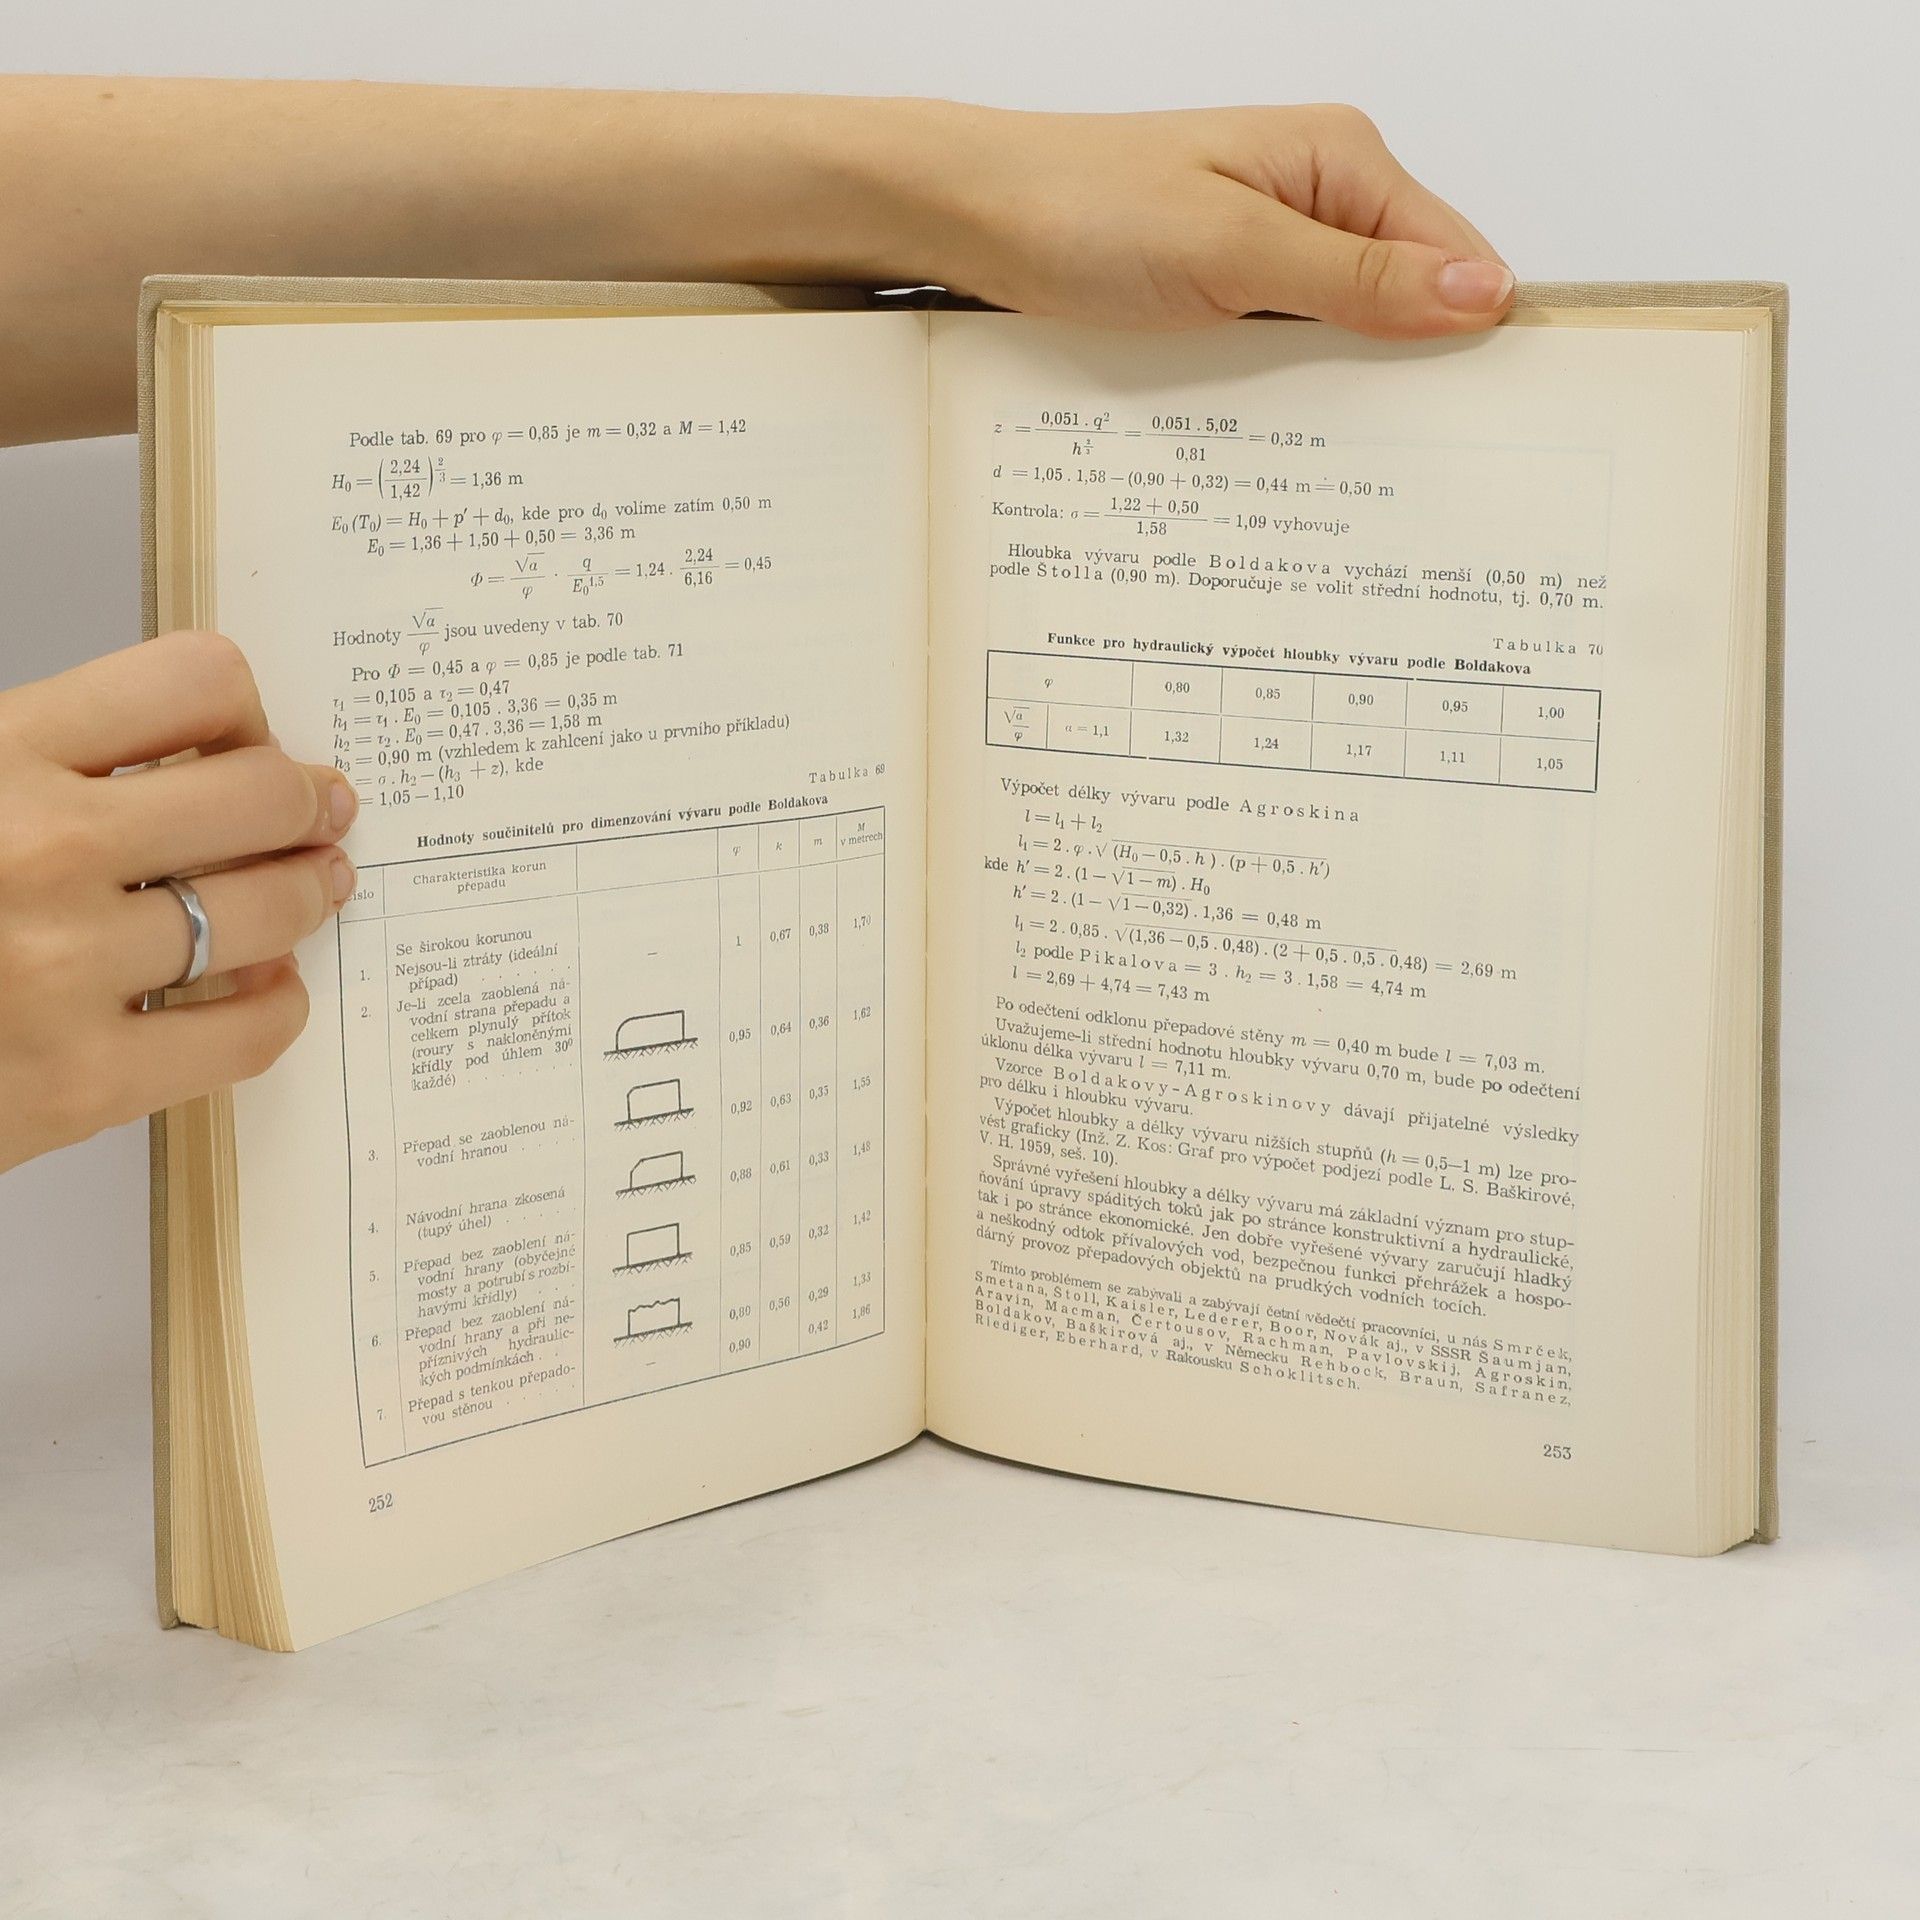 Podle tab. 69 pro φ = 0,85 je m = 0,32 a M = 1,42
H₀ = (2,24 / 1,42)^(2/3) = 1,36 m
E₀ (T₀) = H₀ + p′ + d₀, kde pro d₀ volíme zatím 0,50 m
E₀ = 1,36 + 1,50 + 0,50 = 3,36 m
Φ = √a / φ . q / E₀^1,5 = 1,24 . 2,24 / 6,16 = 0,45
Hodnoty √a / φ jsou uvedeny v tab. 70
Pro Φ = 0,45 a φ = 0,85 je podle tab. 71
τ₁ = 0,105 a τ₂ = 0,47
h₁ = τ₁ . E₀ = 0,105 . 3,36 = 0,35 m
h₂ = τ₂ . E₀ = 0,47 . 3,36 = 1,58 m
h₃ = 0,90 m (vzhledem k zahlcení jako u prvního příkladu)
= σ . h₂ — (h₃ + z), kde
= 1,05 — 1,10
Tabulka 69
Hodnoty součinitelů pro dimenzování vývaru podle Boldakova
Charakteristika korun přepadu φ k m M v metrech
Se širokou korunou
1. Nejsou-li ztráty (ideální
případ) . . . . . . — 1 0,67 0,38 1,70
2. Je-li zcela zaoblená ná-
vodní strana přepadu a
celkem plynulý přítok
(roury s nakloněnými
křídly pod úhlem 30⁰
každé) . . . . . . . 0,95 0,64 0,36 1,62
3. Přepad se zaoblenou ná-
vodní hranou . . . . 0,92 0,63 0,35 1,55
4. Návodní hrana zkosená
(tupý úhel) . . . . . 0,88 0,61 0,33 1,48
5. Přepad bez zaoblení ná-
vodní hrany (obyčejné
mosty a potrubí s rozbí-
havými křídly) . . 0,85 0,59 0,32 1,42
6. Přepad bez zaoblení ná-
vodní hrany a při ne-
příznivých hydraulic-
kých podmínkách . . 0,80 0,56 0,29 1,33
7. Přepad s tenkou přepado-
vou stěnou . . . . . — 0,90 0,42 1,86
252
z = 0,051 . q² / h^(2/3) = 0,051 . 5,02 / 0,81 = 0,32 m
d = 1,05 . 1,58 — (0,90 + 0,32) = 0,44 m ≐ 0,50 m
Kontrola: σ = 1,22 + 0,50 / 1,58 = 1,09 vyhovuje
Hloubka vývaru podle Boldakova vychází menší (0,50 m) než
podle Štolla (0,90 m). Doporučuje se volit střední hodnotu, tj. 0,70 m.
Tabulka 70
Funkce pro hydraulický výpočet hloubky vývaru podle Boldakova
φ 0,80 0,85 0,90 0,95 1,00
√a / φ a = 1,1 1,32 1,24 1,17 1,11 1,05
Výpočet délky vývaru podle Agroskina
l = l₁ + l₂
l₁ = 2 . φ . √(H₀ — 0,5 . h ) . (p + 0,5 . h′)
kde h′ = 2 . (1 — √1 — m) . H₀
h′ = 2 . (1 — √1 — 0,32) . 1,36 = 0,48 m
l₁ = 2 . 0,85 . √(1,36 — 0,5 . 0,48) . (2 + 0,5 . 0,5 . 0,48) = 2,69 m
l₂ podle Pikalova = 3 . h₂ = 3 . 1,58 = 4,74 m
l = 2,69 + 4,74 = 7,43 m
Po odečtení odklonu přepadové stěny m = 0,40 m bude l = 7,03 m.
Uvažujeme-li střední hodnotu hloubky vývaru 0,70 m, bude po odečtení
úklonu délka vývaru l = 7,11 m.
Vzorce Boldakovy-Agroskinovy dávají přijatelné výsledky
pro délku i hloubku vývaru.
Výpočet hloubky a délky vývaru nižších stupňů (h = 0,5—1 m) lze pro-
vést graficky (Inž. Z. Kos: Graf pro výpočet podjezí podle L. S. Baškirové,
V. H. 1959, seš. 10).
Správné vyřešení hloubky a délky vývaru má základní význam pro stup-
ňování úpravy spáditých toků jak po stránce konstruktivní a hydraulické,
tak i po stránce ekonomické. Jen dobře vyřešené vývary zaručují hladký
a neškodný odtok přívalových vod, bezpečnou funkci přehrážek a hospo-
dárný provoz přepadových objektů na prudkých vodních tocích.
Tímto problémem se zabývali a zabývají četní vědečtí pracovníci, u nás Smrček,
Smetana, Štoll, Kaisler, Lederer, Boor, Novák aj., v SSSR Šaumjan,
Aravin, Macman, Čertousov, Rachman, Pavlovskij, Agroskin,
Boldakov, Baškirová aj., v Německu Rehbock, Braun, Safranez,
Riediger, Eberhard, v Rakousku Schoklitsch.
253